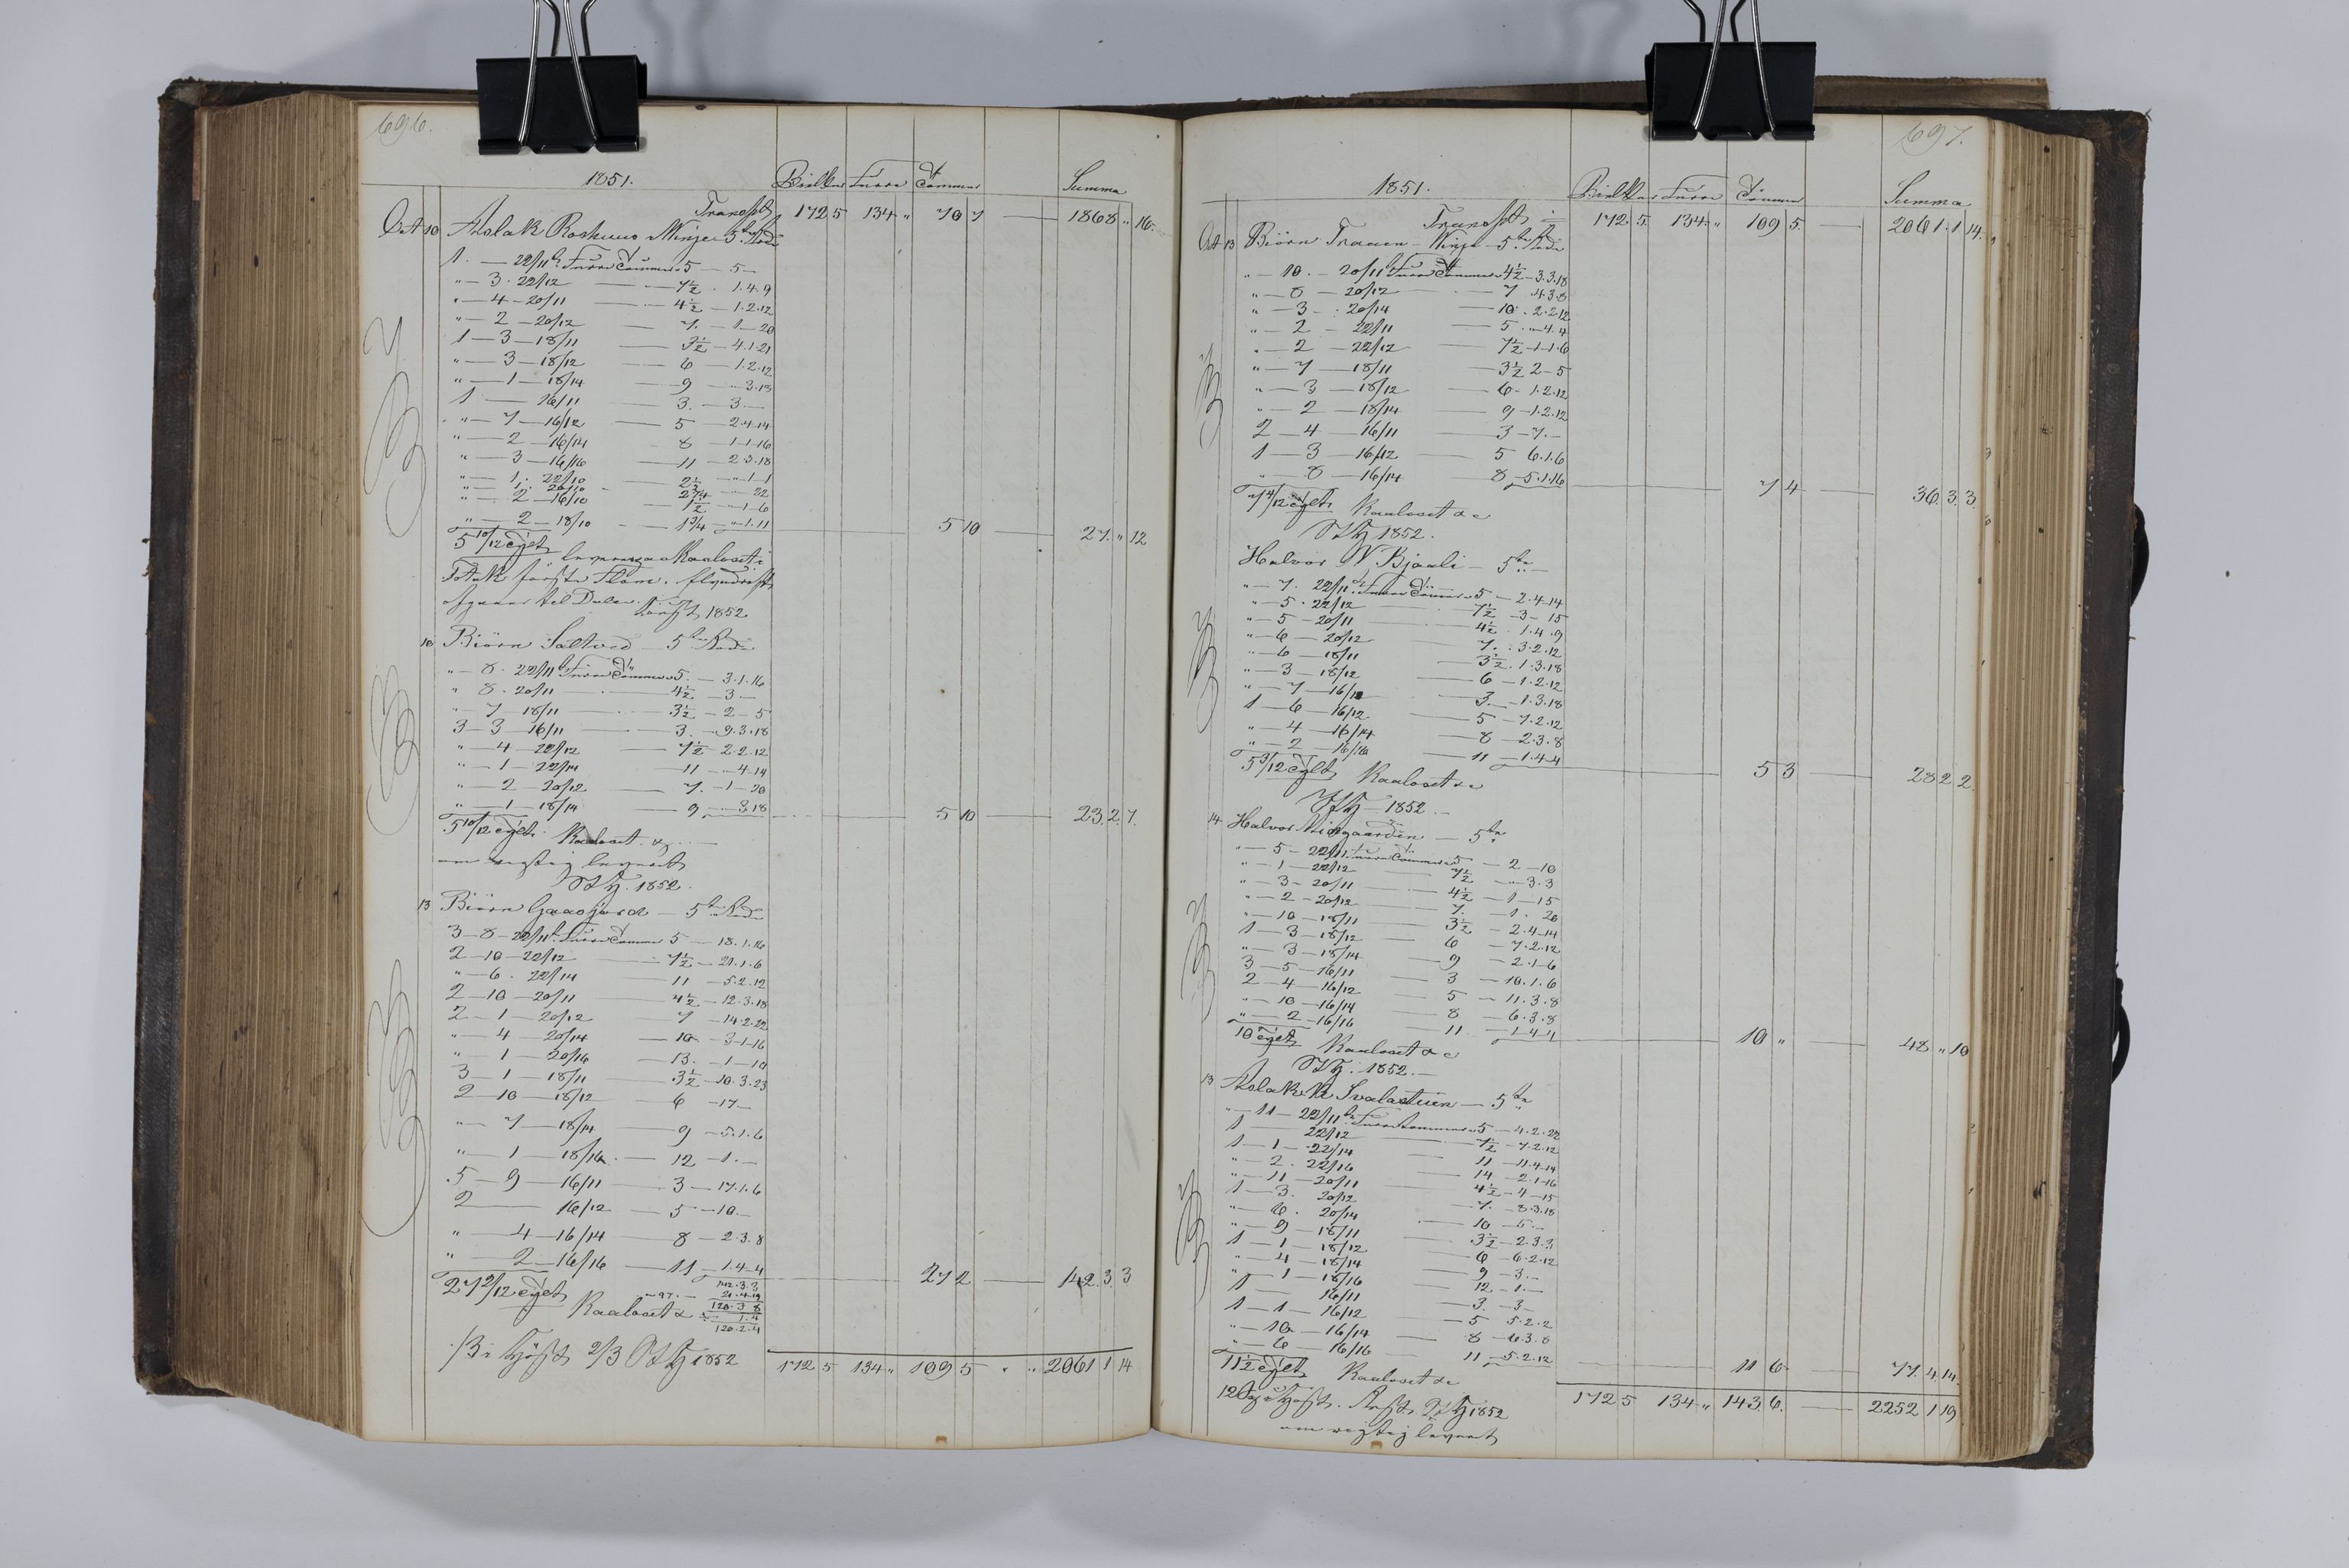 696.
1851. Bielker Furre Tømmer Summa
Transpt 172 5 134 " 70 7 — 1868 " 16.
Oct 10 Aslak Roshuus Winje 5te Rode
1. — 22/11 b. Furre Tømmer 5 — 5 —
" — 3 . 22/12 — 7½ . 1.4.9
" — 4 — 20/11 — 4½ — 1.2.12
" — 2 — 20/12 — 7. — 1 — 20
1 — 3 — 18/11 — 3½ — 4.1.21
" — 3 — 18/12 — 6 — 1.2.12
" — 1 — 18/14 — 9 — " 3.18
1 — 16/11 — 3. — 3. —
" — 7 — 16/12 — 5 — 2.4.14
" — 2 — 16/14 — 8 — 1.1.16
" — 3 — 16/16 — 11 — 2.3.18
" — 1. 22/10 — 2½ — " 1 — 1
" — 1. 20/10 — 2¼ — " — 22
" — 2 — 16/10 — 1½ — " 1 — 6
" — 2 — 18/10 — 1¾ — " 1.11
5 10/12 Tylt 5 10 — 27. " 12
leveres paa Raaloset i
Totak første Fløm.
afgaar til Dalen. 1852
10 Biørn Saltved — 5te Rode
" — 8. 22/11 b. Furre Tømmer 5. — 3.1.16
" 8. 20/11 — 4½ — 3. —
" — 7 — 18/11 — 3½ — 2 — 5
3 — 3 — 16/11 — 3. — 9.3.18
" — 4 — 22/12 — 7½ — 2.2.12
" — 1 — 22/14 — 11 — " 4.14
" — 2 — 20/12 — 7. — 1 — 20
" — 1 — 18/14 — 9 — " 3.18
5 10/12 Tylt. 5 10 — 23.2.7.
Raaloset &
om rigtig leveret
1852.
13 Biørn Gaasjord — 5te Rode
3 — 8 — 22/11 b. Furre Tømmer 5 — 18.1.16
2 — 10 — 22/12 — 7½ — 21.1.6
" — 6. 22/14 — 11 — 5.2.12
2 — 10 — 20/11 — 4½ — 12.3.18
2 — 1 — 20/12 — 7 — 14.2.22
" — 4 — 20/14 — 10. — 3.1.16
" — 1 — 20/16 — 13. — 1 — 10
3 — 1 — 18/11 — 3½ — 10.3.23
2 — 10 — 18/12 — 6 — 17 —
" — 7 — 18/14 — 9 — 5.1.6
" — 1 — 18/16 — 12 — 1. —
5 — 9 — 16/11 — 3 — 17.1.6
2 — 16/12 — 5 — 10. —
" — 4 — 16/14 — 8 — 2.3.8
" — 2 — 16/16 — 11 — 1.4.4
27 2/12 Tylt 27 2 — 142.3 3
142.3.3
21.4.19
120.3.8
1.4
120.2.4
Raaloset &
2/3 1852
172 5 134 " 109 5 " " 2061 1 14
697.
1851. Bielker Furre Tømmer Summa
Transpt 172 5. 134. " 109 5. — 2061. 1 14.
Oct 13 Biørn Traaen — Winje — 5te Rode
" — 10. — 20/11 b. Furre Tømmer 4½ — 3.3.18
" — 8 — 20/12 — 7 4.3.8
" — 3 — 20/14 — 10. 2.2.12
" — 2 — 22/11 — 5. " 4.4
" — 2 — 22/12 — 7½ — 1.1.6
" — 7 — 18/11 — 3½ 2 — 5
" — 3 — 18/12 — 6 — 1.2.12
" — 2 — 18/14 — 9 — 1.2.12
2 — 4 — 16/11 — 3 — 7. —
1 — 3 — 16/12 — 5 6.1.6
" — 8 — 16/14 — 8 — 5.1.16
7 4/12 Tylt 7 4 — 36.3 3
Raaloset &c
1852.
Halvor N Bjaali — 5te —
" — 7. 22/11 b. Furre Tømmer 5 — 2.4.14
" — 5. 22/12 — 7½ — 3 — 15
" — 5 — 20/11 — 4½ . 1.4.9
" — 6 — 20/12 — 7. . 3.2.12
" — 6 — 18/11 — 3½ . 1.3.18
" — 3 — 18/12 — 6 — 1.2.12
" — 7 — 16/11 — 3. — 1.3.18
1 — 6 — 16/12 — 5 — 7.2.12
" — 4 — 16/14 — 8 — 2.3.8
" — 2 — 16/16 — 11 — 1.4.4
5 3/12 Tylt 5 3 — 28 2 2
Raaloset &c
1852.
14 Halvor Midgaarden — 5te
" — 5 — 22/11 Furre Tømmer 5 — 2 — 10
" — 1 — 22/12 — 7½ — " 3.3
" — 3 — 20/11 — 4½ — 1 — 15
" — 2 — 20/12 — 7. — 1. 20
" — 10 — 18/11 — 3½ — 2.4.14
1 — 3 — 18/12 — 6 — 7.2.12
" — 3 — 18/14 — 9 — 2.1.6
3 — 5 — 16/11 — 3 — 10.1.6
2 — 4 — 16/12 — 5 — 11.3.8
" — 10 — 16/14 — 8 — 6.3.8
" — 2 — 16/16 — 11 — 1.4.4
10 Tylt 10 " — 48 " 10
Raaloset &c
1852. —
13 Aslak K Svalastuen — 5te
" — 11 — 22/11 b. Furre Tømmer 5 — 4.2.22
1 22/12 — 7½ — 7.2.12
1 — 1 — 22/14 — 11 — 11.4.14
" — 2. 22/16 — 14 — 2.1.16
" — 11 — 20/11 — 4½ — 4 — 15
1 — 3. 20/12 — 7. — 8.3.18
" — 6. 20/14 — 10 — 5. —
" — 9 — 18/11 — 3½ — 2.3.3
1 — 1 — 18/12 — 6 — 6.2.12
" — 4 — 18/14 — 9 — 3. —
" — 1 — 18/16 — 12 — 1. —
1 16/11 — 3. — 3 —
1 — 1 — 16/12 — 5 5.2.2
" — 10 — 16/14 — 8 — 6.3.8
" — 6 16/16 — 11 — 5.2.12
11½ Tylt 11 6 — 77. 4 14.
Raaloset &c
1852
om rigtig leveret
172 5 134 " 143 6. — 2252 1 19